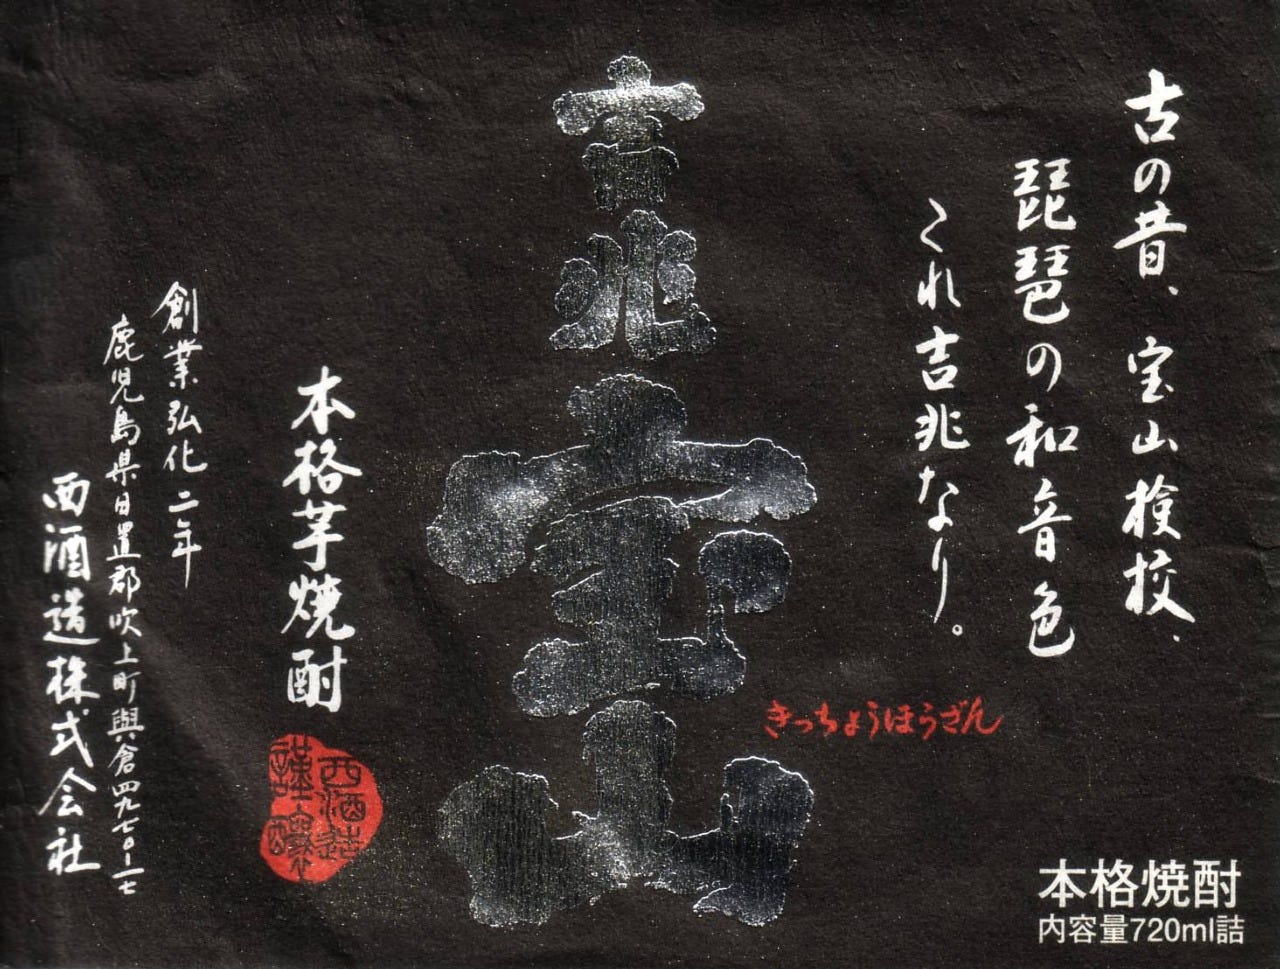 古の昔、宝山検校、
琵琶の和音色
これ吉兆なり。
吉兆宝山
きっちょうほうざん
本格芋焼酎
西酒造
謹醸
創業弘化二年
鹿児島県日置郡吹上町與倉四九七〇-一七
西酒造株式会社
本格焼酎
内容量720ml詰